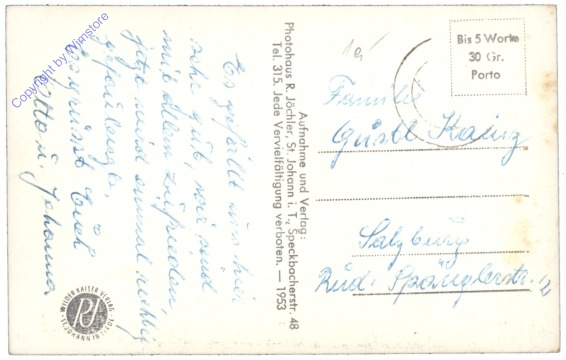 Es gefällt uns hier
sehr gut, wir sind
mit allem zufrieden,
jetzt wird einmal richtig
gefaulenzt.
Es grüsst Euch
Otto u. Johanna
Aufnahme und Verlag:
Photohaus R. Jöchler, St. Johann i. T., Speckbacherstr. 48
Tel. 315. Jede Vervielfältigung verboten. — 1953
Bis 5 Worte
30 Gr.
Porto
Familie
Gustl Kainz
Salzburg
Rud. Spänglerstr. 12
WILDER KAISER VERLAG
RJ
ST. JOHANN IN TIROL
Copyright by Winstore